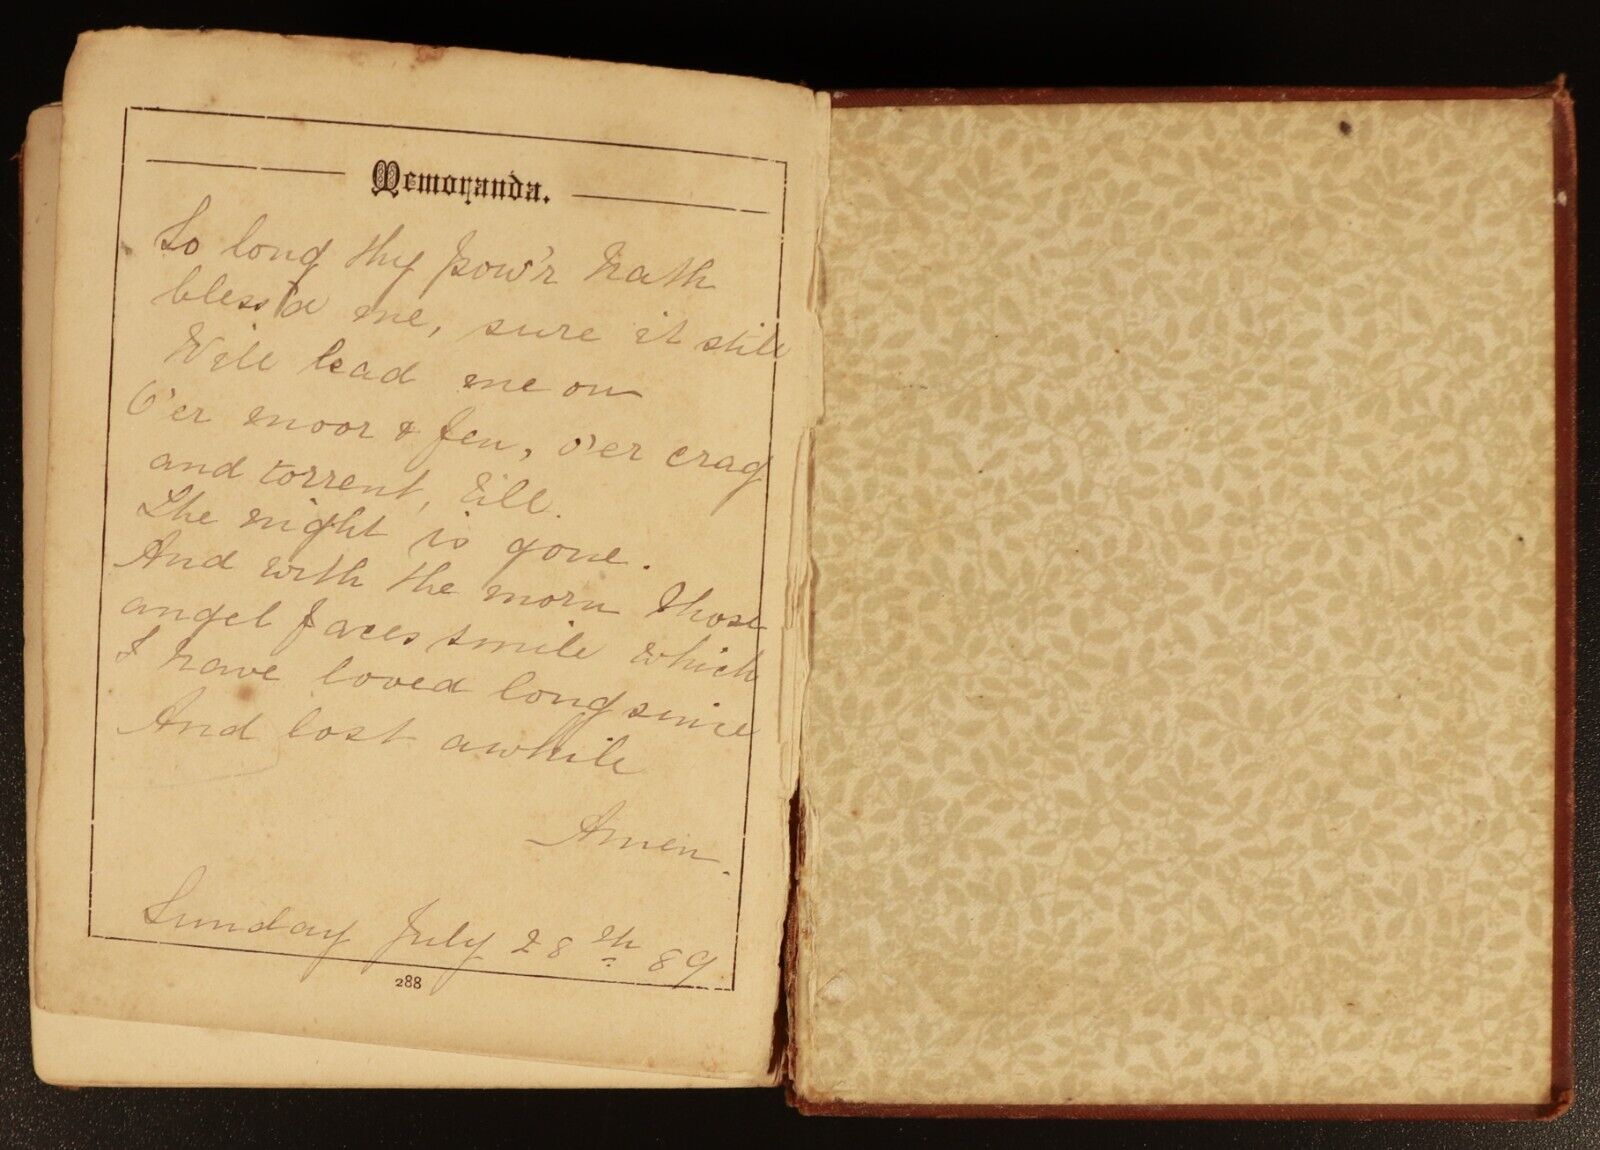 Memoranda.
So long thy pow'r hath
bless'd me, sure it still
Will lead me on
O'er moor & fen, o'er crag
and torrent, till.
The night is gone.
And with the morn those
angel faces smile which
I have loved long since
And lost awhile
Amen.
Sunday July 28th 89
288